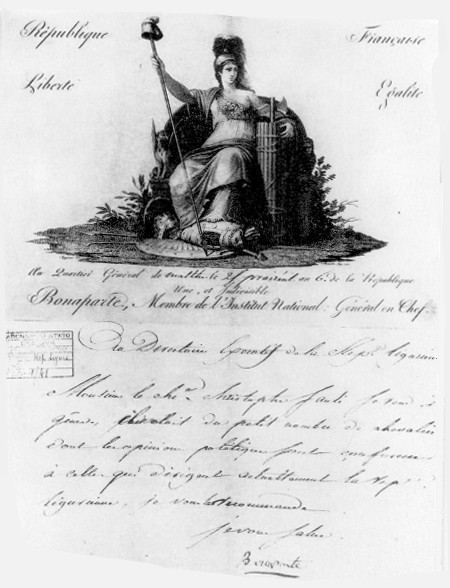 République Française
Liberté Egalité
Au Quartier Général de malthe le prairéal an 6.e de la République
Une, et Indivisible
Bonaparte, Membre de l'Institut National, Général en Chef.
Directoire Executif de la Rep.e Ligurienne
Monsieur le che.r christophe
du petit nombre de chevaliers
dont les opinion politique sont conformes
à celle qui dirigent actuellement la rep.
ligurienne, je vous le recommande
je vous salue.
Bonaparte
ARCHIVIO DI STATO